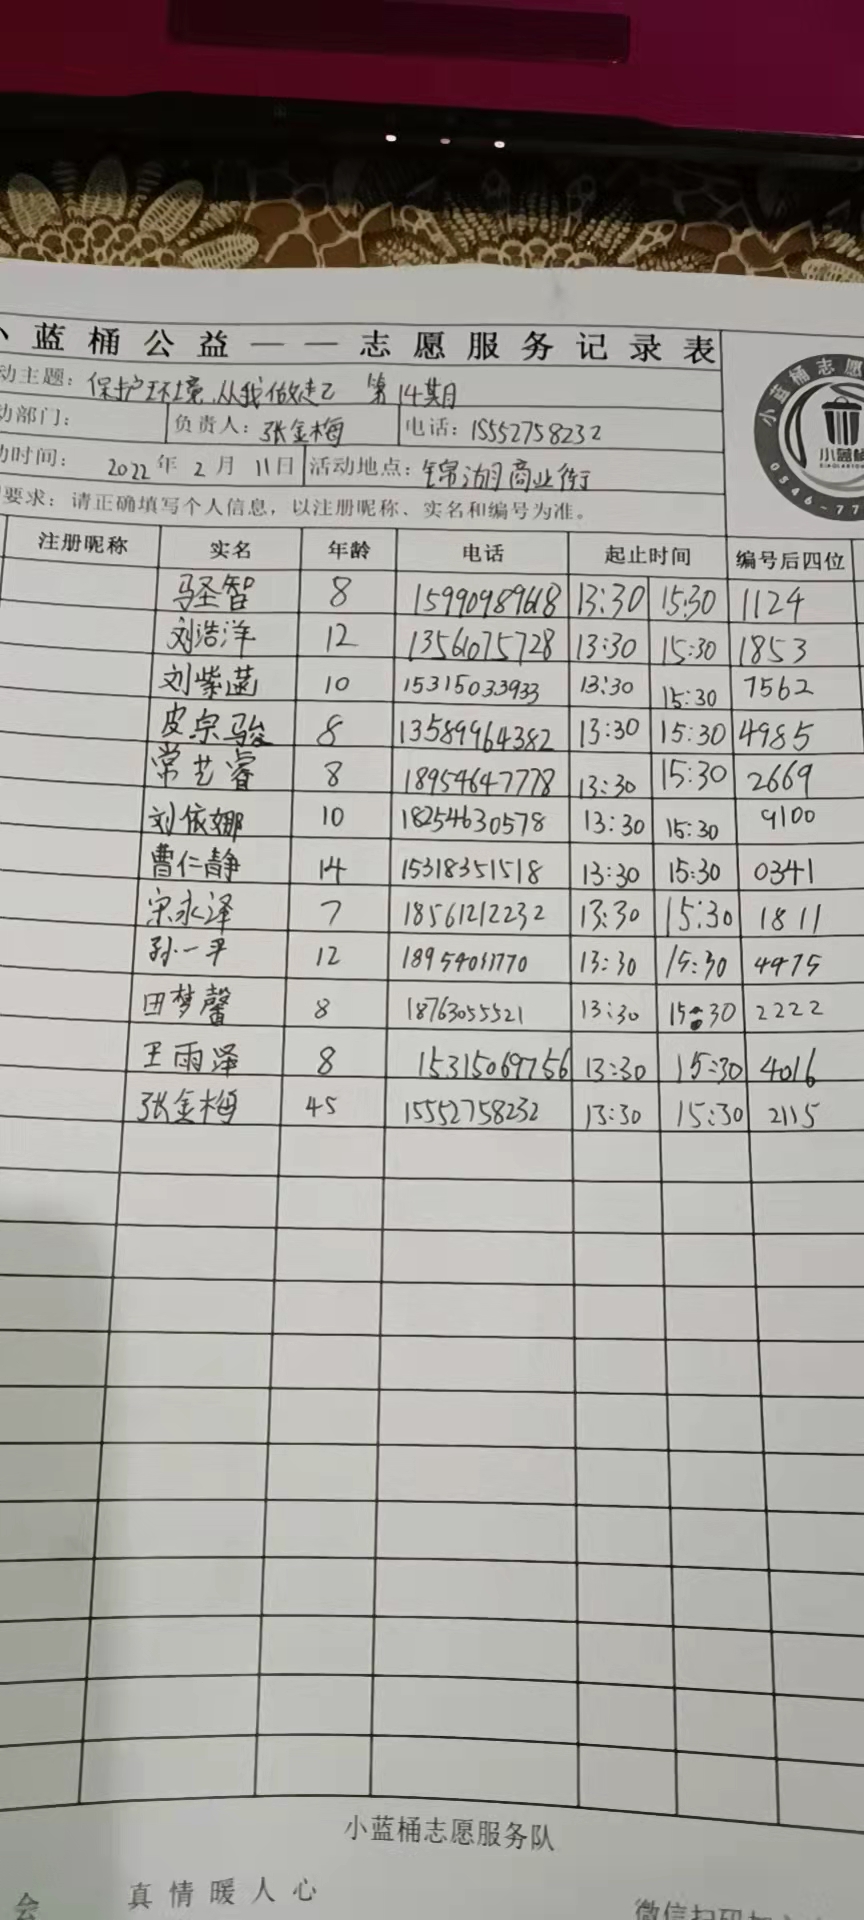 小蓝桶公益——志愿服务记录表
动主题：保护环境，从我做起 第14期
动部门： 负责人：张金梅 电话：15552758232
动时间： 2022年2月11日 活动地点：锦湖商业街
要求：请正确填写个人信息，以注册昵称、实名和编号为准。
小蓝桶志愿
小蓝桶
0546-77
注册昵称 实名 年龄 电话 起止时间 编号后四位
马圣智 8 15990989618 13:30 15:30 1124
刘浩洋 12 13561075728 13:30 15:30 1853
刘紫菡 10 15315033933 13:30 15:30 7562
皮宗骏 8 13589964382 13:30 15:30 4985
常艺睿 8 18954647778 13:30 15:30 2669
刘依娜 10 18254630578 13:30 15:30 9100
曹仁静 14 15318351518 13:30 15:30 0341
宋永泽 7 18561212232 13:30 15:30 1811
孙一平 12 13:30 15:30 4475
田梦馨 8 18763055521 13:30 15:30 2222
王雨泽 8 15315069756 13:30 15:30 4016
张金梅 45 15552758232 13:30 15:30 2115
小蓝桶志愿服务队
会 真情暖人心
微信扫码